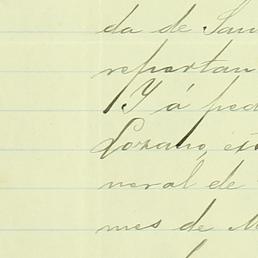 da de San
reportan
Y á ped
Lozano, es
neral de
mes de M